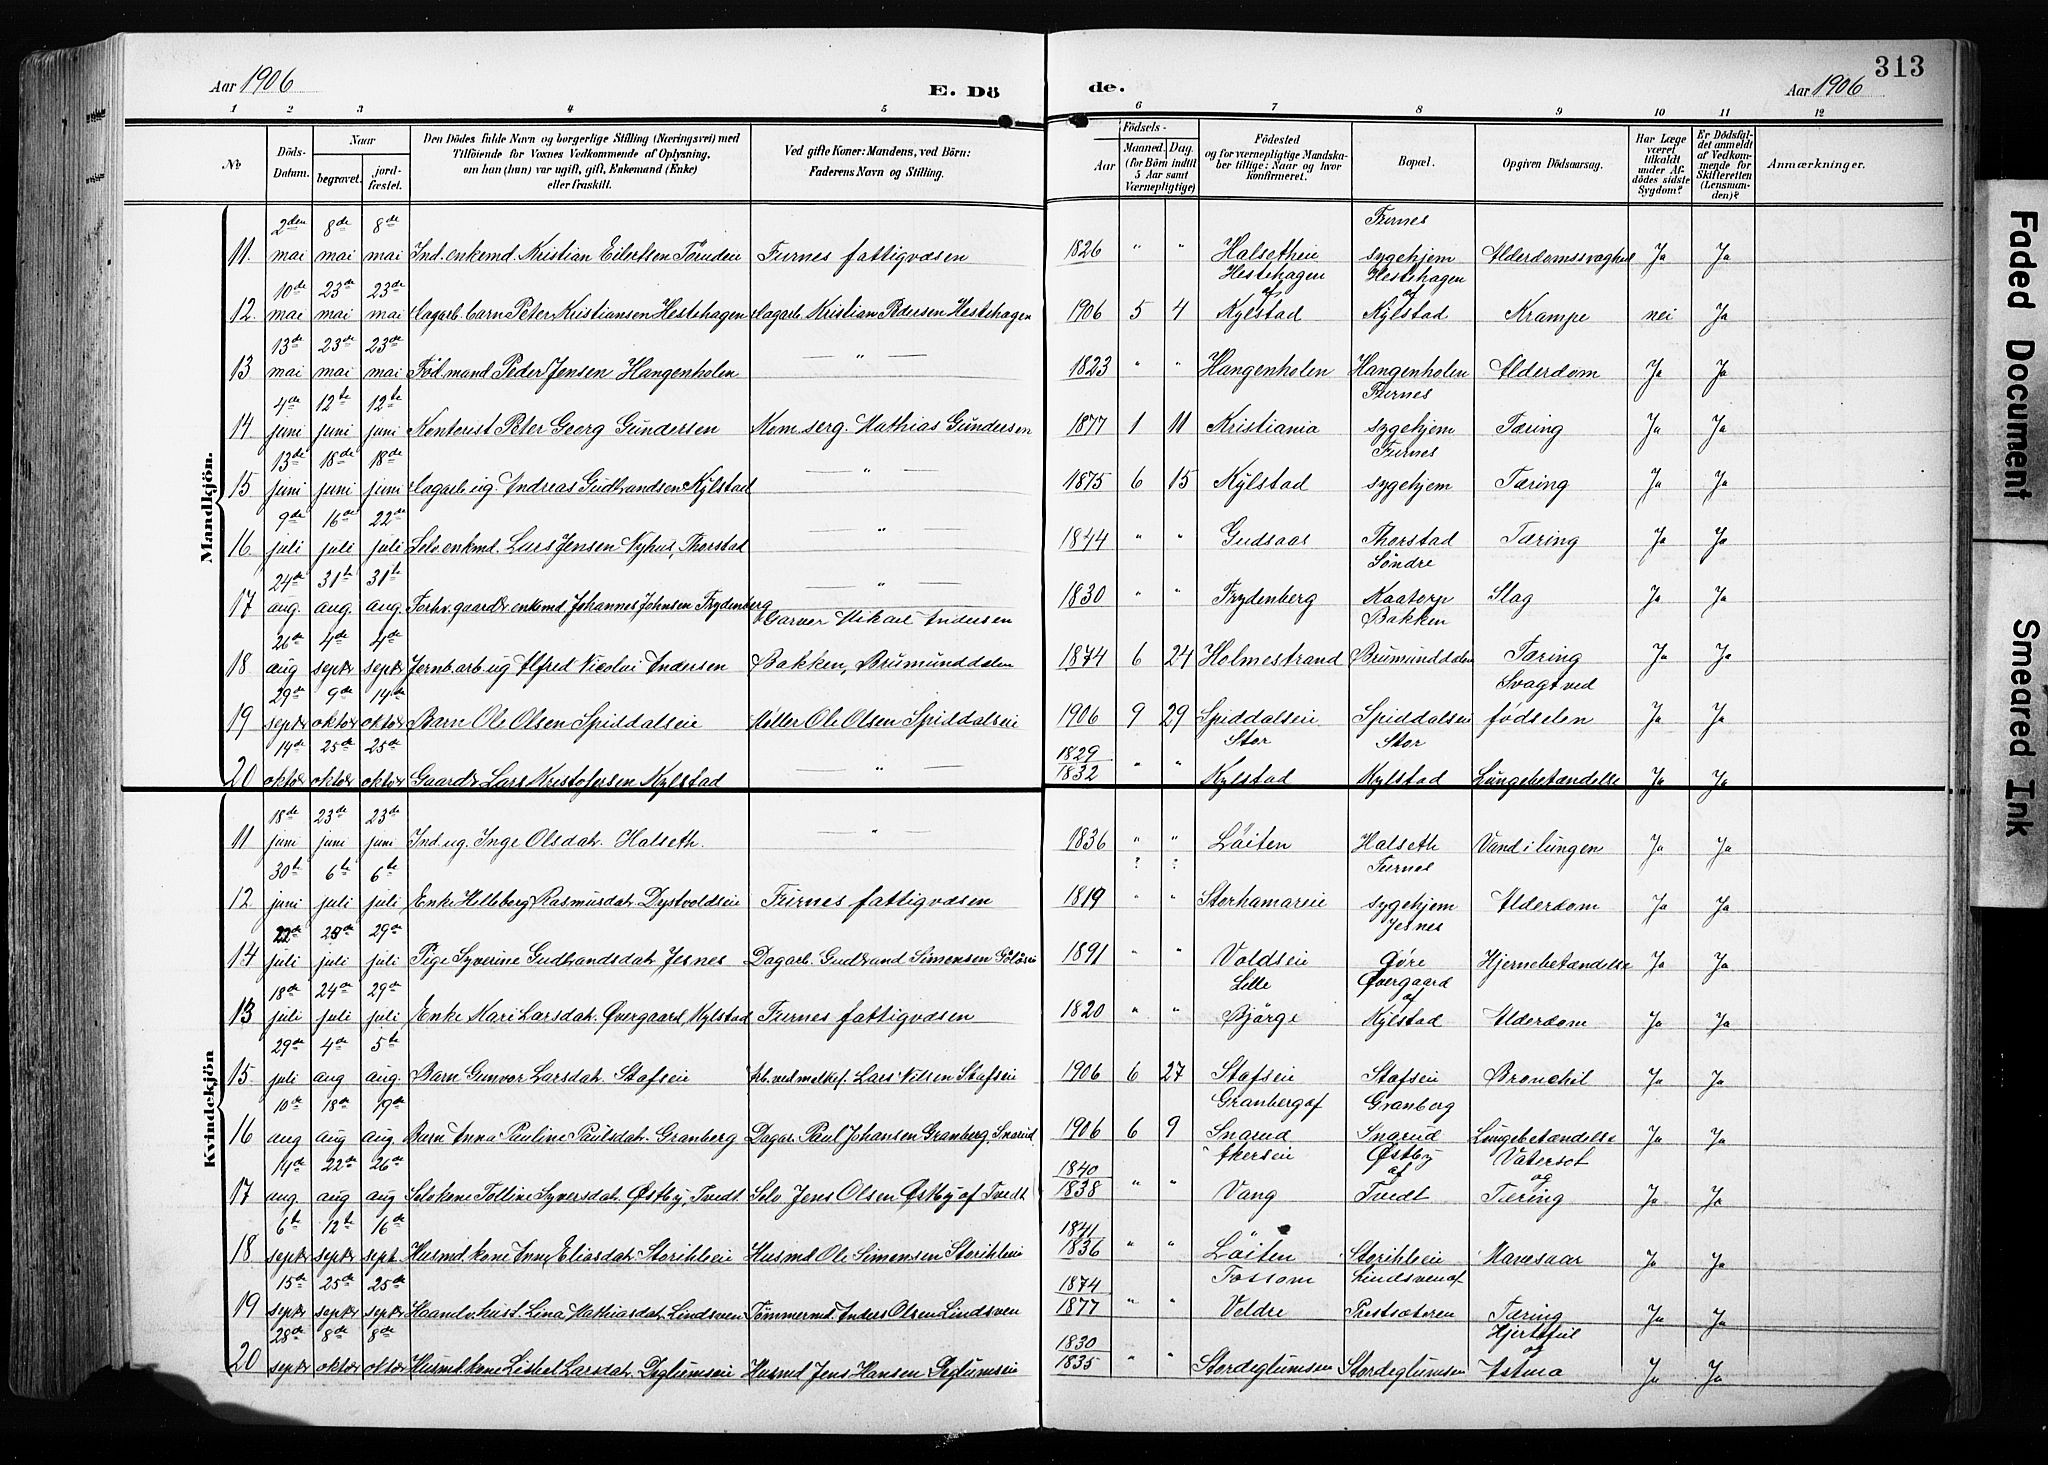 313
Aar 1906
E. Dö
de.
Aar 1906
1 2 3 4 5 6 7 8 9 10 11 12
No
Döds-Datum.
Naar
begravet.
jordfæstet.
Den Dödes fulde Navn og borgerlige Stilling (Næringsvei) med Tilföiende for Voxnes Vedkommende af Oplysning, om han (hun) var ugift, gift, Enkemand (Enke) eller fraskilt.
Ved gifte Koner: Mandens, ved Börn: Faderens Navn og Stilling.
Födsels-
Aar
Maaned. Dag.
(for Börn indtil 5 Aar samt Værnepligtige)
Födested og for værnepligtige Mandskaber tillige: Naar og hvor Konfirmeret.
Bopæl.
Opgiven Dödsaarsag.
Har Læge været tilkaldt under Afdödes sidste Sygdom?
Er Dödsfaldet anmeldt af Vedkommende for Skifteretten (Lensmanden)?
Anmærkninger.
Mandkjön.
11. 2den mai 8de mai 8de mai Ind. enkemd. Kristian Eilertsen Furnes fattigvæsen 1826 " " Halsetheie Furnes sygehjem Alderdomssvaghed Ja Ja
12. 10de mai 23de mai 23de mai Dagarb. barn Peter Kristiansen Hestehagen Dagarb. Kristian Pedersen Hestehagen 1906 5 4 Hestehagen af Kylstad Hestehagen af Kylstad Krampe nei Ja
13 13de mai 23de mai 23de mai Föd. mand Peder Jensen Hangenholen — " — 1823 " " Hangenholen Hangenholen Alderdom Ja Ja
14 4de juni 12te juni 12te juni Kontorist Peter Georg Gundersen Kom. serg. Mathias Gundersen 1877 1 11 Kristiania Furnes sygehjem Tæring Ja Ja
15 13de juni 18de juni 18de juni Dagarb. ug. Andreas Gudbrandsen Kylstad — " — 1875 6 15 Kylstad Furnes sygehjem Tæring Ja Ja
16 9de juli 16de juli 22de juli Selv. enkmd. Lars Jensen Nyhus, Thorstad — " — 1844 " " Gudsaas Thorstad Tæring Ja Ja
17 24de aug. 31te aug. 31te aug. Forhv. gaardbr. enkmd Johannes Johnsen Frydenberg — " — 1830 " " Frydenberg Söndre Kaatorp Slag Ja Ja
18 26de aug 4de septr 4de septr Jernb. arb. ug Alfred Nicolai Andersen Garver Mikael Andersen Bakken, Brumunddalen 1874 6 24 Holmestrand Bakken Brumunddalen Tæring Ja Ja
19 29de septr 9de oktbr 14de oktbr Barn Ole Olsen Spiddalseie Möller Ole Olsen Spiddalseie 1906 9 29 Spiddalseie Spiddalseie Svagt ved födselen Ja Ja
20 14de oktbr 25de oktbr 25de oktbr Gaardbr Lars Kristofersen Kylstad — " — 1829 1832 " " Stor Kylstad Stor Kylstad Lungebetændelse Ja Ja
Kvindekjön
11 18de juni 23de juni 23de juni Ind. ug. Inge Olsdatr. Halseth. — " — 1836 " " Löiten Halseth Vand i lungen Ja Ja
12. 30te juni 6te juli 6te juli Enke Helleborg Rasmusdatr. Dystvoldseie Furnes fattigvæsen 1819 ? " ? " Storhamareie Furnes sygehjem Alderdom Ja Ja
14 22de juli 28de juli 29de juli Pige Syverine Gudbrandsdatr. Jesnes Dagarb. Gudbrand Simensen 1891 " " Voldseie Jesnes Övre Hjernebetændelse Ja Ja
13 18de juli 24de juli 29de juli Enke Mari Larsdatr. Øvergaard, Kylstad Furnes fattigvæsen 1820 " " Lille Björge Øvergaard af Kylstad Alderdom Ja Ja
15 29de juli 4de aug 5te aug. Barn Gunvor Larsdatr. Stafseie Arb. ved melkef. Lars Nilsen Stafseie 1906 6 27 Stafseie Stafseie Bronchit Ja Ja
16 10de aug 18de aug 19de aug Barn Anna Pauline Paulsdatr. Granberg Dagar. Paul Johansen Granberg, Snarud 1906 6 9 Granberg af Snarud Granberg Snarud Lungebetændelse Ja Ja
17 14de aug. 22de aug 26de aug Selv. kone Tolline Syversdatr. Østby, Tvedt Selv. Jens Olsen Østby af Tvedt 1840 1838 " " Akerseie Vang Østby af Tvedt Vatersot og Tæring Ja Ja
18 6te septr 12te septr 16de sept. Husmd. kone Anne Eliasdatr. Storihleeie Husmd Ole Simensen Storihleeie 1841 1836 " " Löiten Storihleeie Mavesaar Ja Ja
19 15de septr 25de septr 25de septr Haandv. hust. Lina Mathiasdatr. Lindsven Tömmermd. Anders Olsen Lindsven 1874 1877 " " Fossom Veldre Lindsven af Prestsæteren Tæring Ja Ja
20 28de septr 8de oktbr 8de oktbr Husmd. kone Lisbet Larsdatr. Deglumseie Husmd Jens Hansen Deglumseie 1830 1835 " " Stordeglumseie Stordeglumseie Hjertefeil og Astma Ja Ja
Faded Document
Smeared Ink